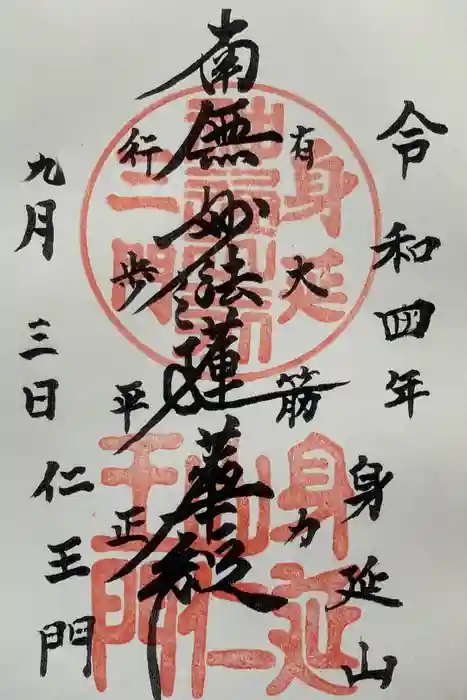 令和四年
身延山
有大筋力
南無妙法蓮華経
行歩平正
九月三日
仁王門
身延
身延
山仁
王門